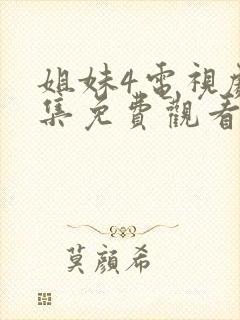 姐妹4電視劇
集免費觀看
莫顏希